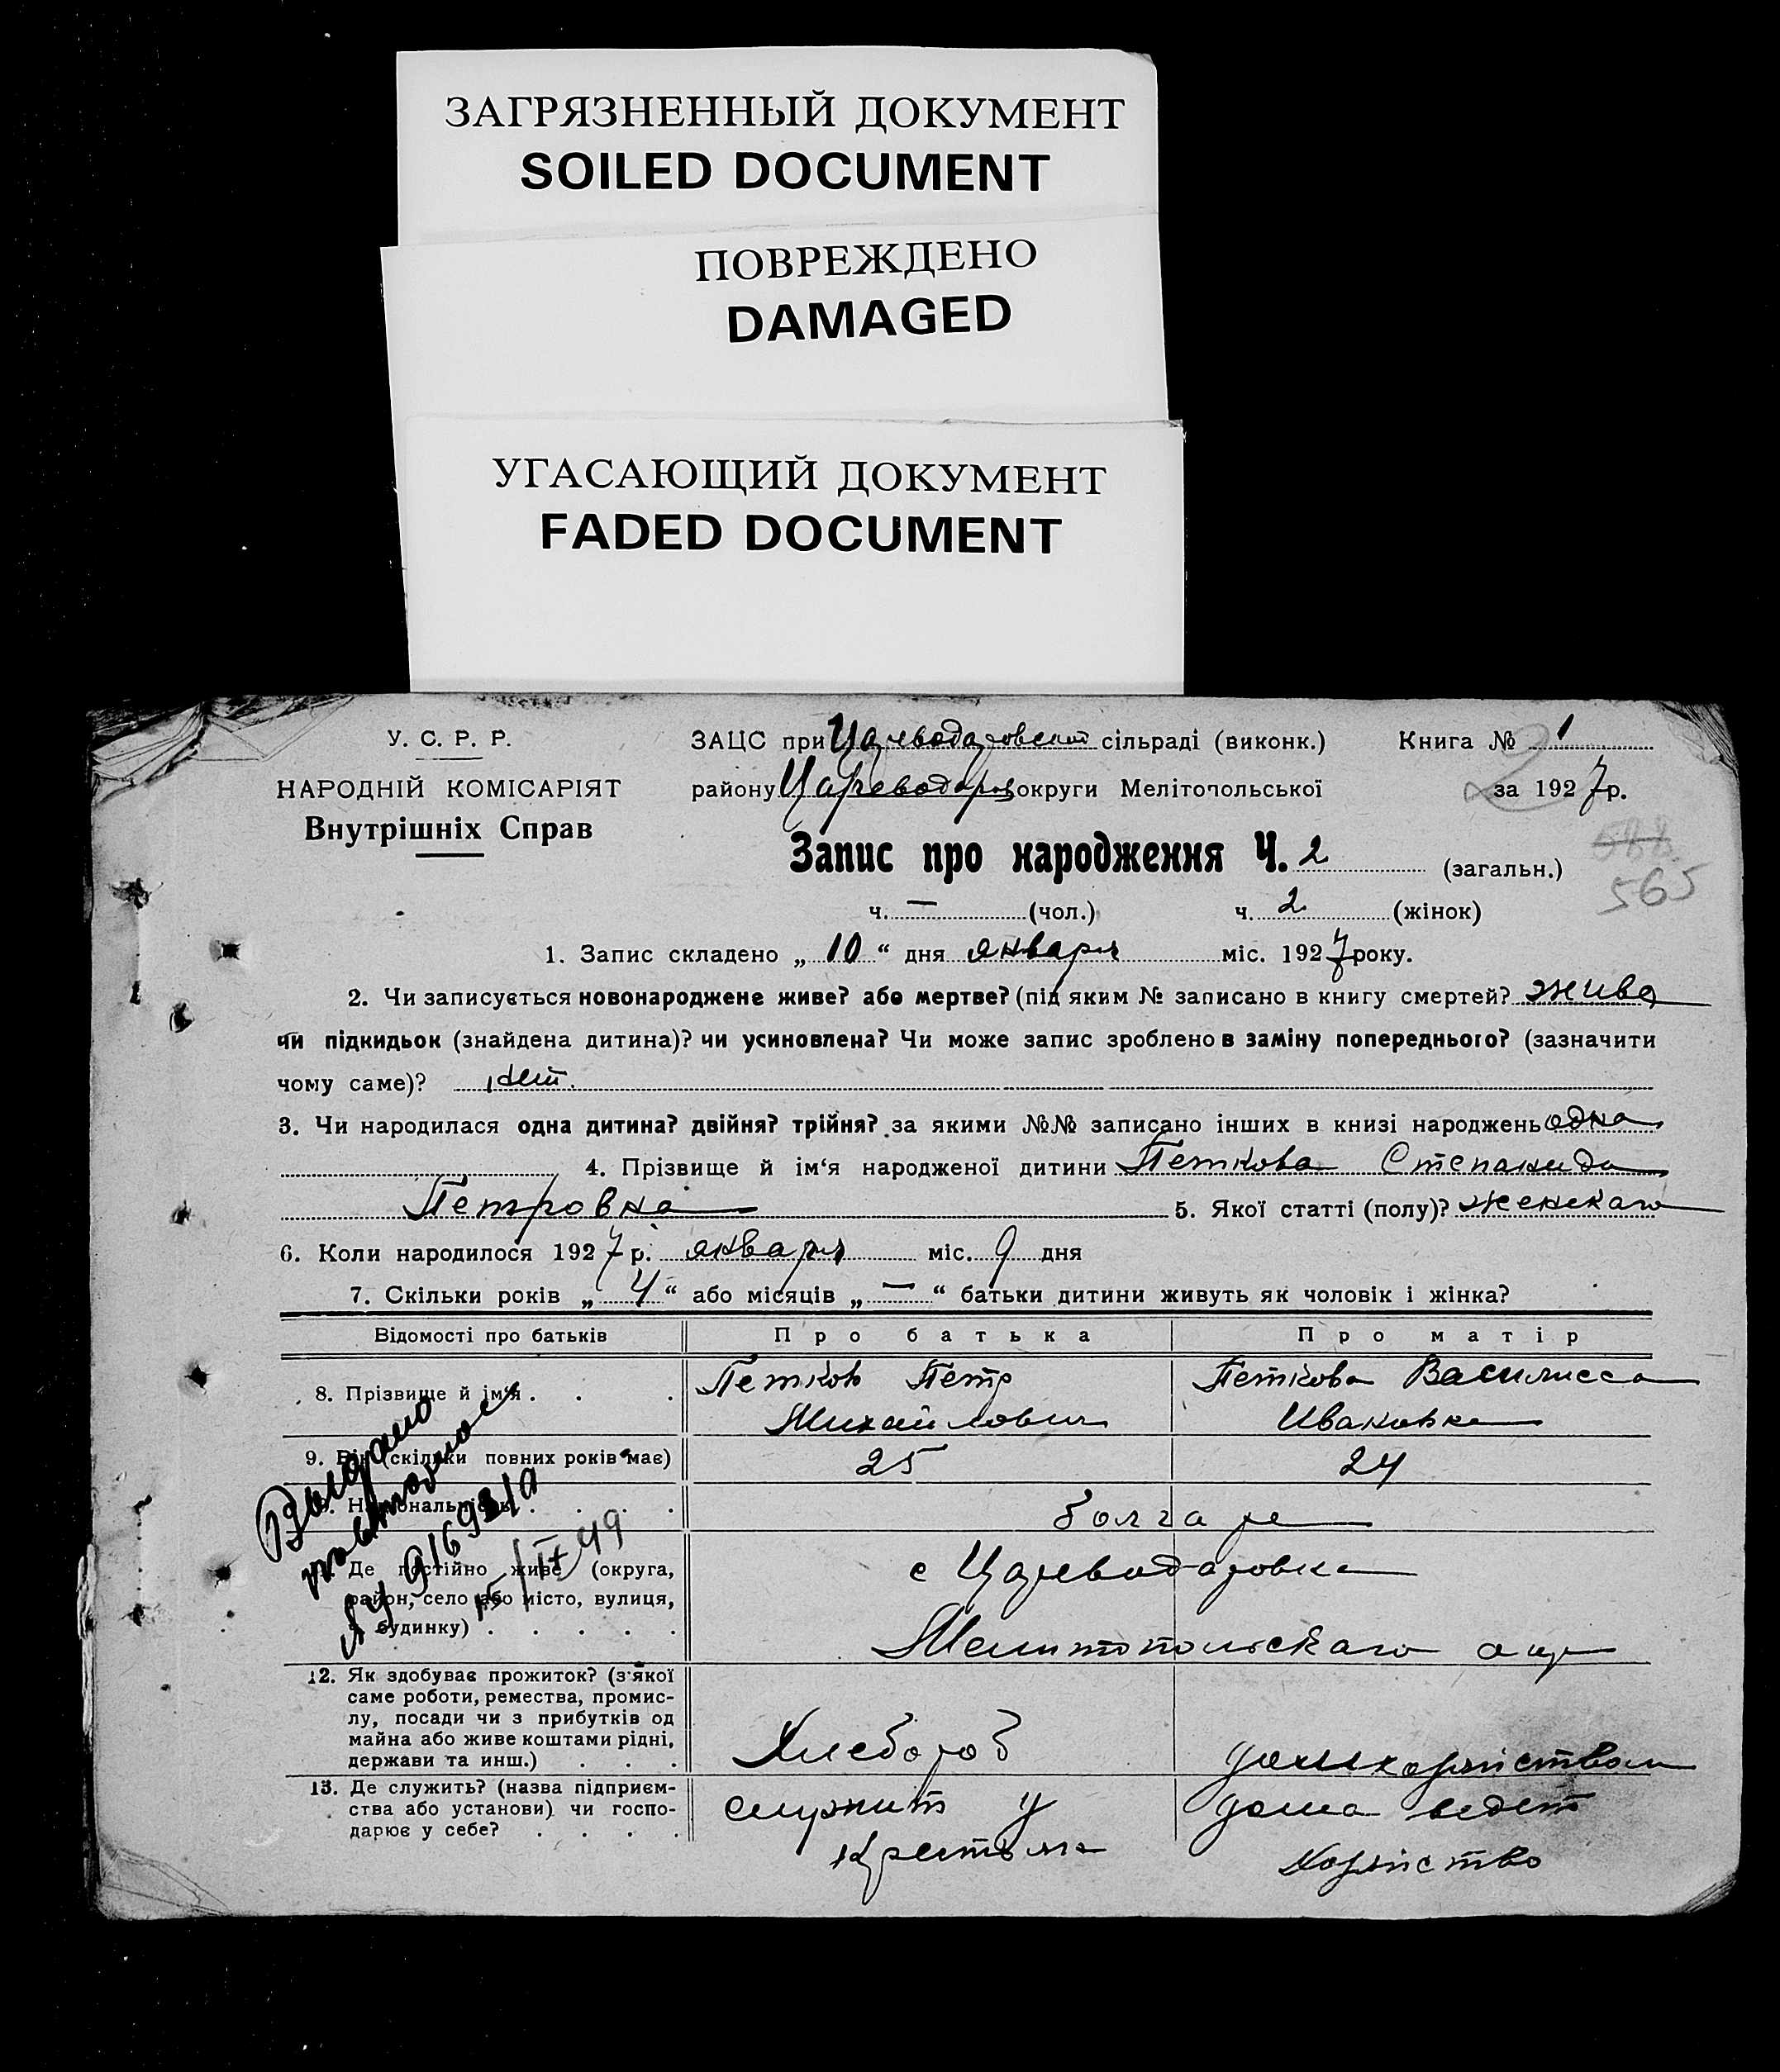 ЗАГРЯЗНЕННЫЙ ДОКУМЕНТ
SOILED DOCUMENT
ПОВРЕЖДЕНО
DAMAGED
УГАСАЮЩИЙ ДОКУМЕНТ
FADED DOCUMENT
У. С. Р. Р.
НАРОДНІЙ КОМІСАРІЯТ
Внутрішніх Справ
ЗАЦС при Цареводаровской сільраді (виконк.) Книга № 1
району Цареводаров округи Мелітопольської за 1927 р.
2
Запис про народження Ч. 2 (загальн.)
565
ч. — (чол.) ч. 2 (жінок)
1. Запис складено „ 10 “ дня января міс. 1927 року.
2. Чи записується новонароджене живе? або мертве? (під яким № записано в книгу смертей? жива
чи підкидьок (знайдена дитина)? чи усиновлена? Чи може запис зроблено в заміну попереднього? (зазначити
чому саме)? нет.
3. Чи народилася одна дитина? двійня? трійня? за якими №№ записано інших в книзі народжень одна
4. Прізвище й ім‘я народженої дитини Петкова Степанида
Петровна 5. Якої статті (полу)? женскаго
6. Коли народилося 1927 р. января міс. 9 дня
7. Скільки років „ 4 “ або місяців „ — “ батьки дитини живуть як чоловік і жінка?
Відомості про батьків Про батька Про матір
8. Прізвище й ім‘я . . . Петков Петр Михайлович Петкова Василисса Ивановна
9. Вік (скільки повних років має) 25 24
10. Національність . . . . болгаре
11. Де постійно живе (округа,
район, село або місто, вулиця,
будинку) . . . . .
с Цареводаровка
Мелитопольскаго окр
Выдано
повторное
№ 91693/а
15/IX 49
12. Як здобуває прожиток? (з якої
саме роботи, ремества, промис-
лу, посади чи з прибутків од
майна або живе коштами рідні,
держави та инш.) . . .
Хлебороб
домхозяйством
13. Де служить? (назва підприєм-
ства або установи) чи госпо-
дарює у себе? . . . .
служит у
крестьян
дома ведет
хозяйство